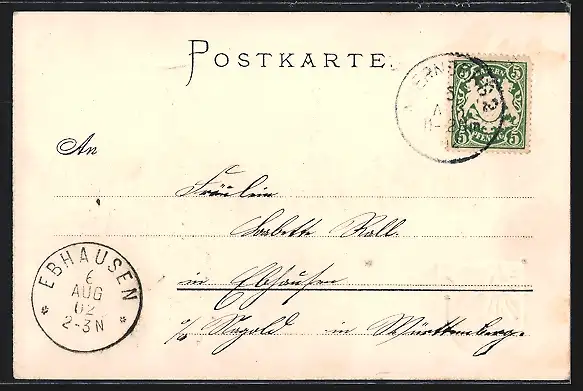 POSTKARTE.
5 5
BAYERN
5 5
PFENNIG
An
Fräulein
Babette Rall.
in Ebhausen
o/a Nagold in Württemberg.
EBHAUSEN
6
AUG
02
2-3N